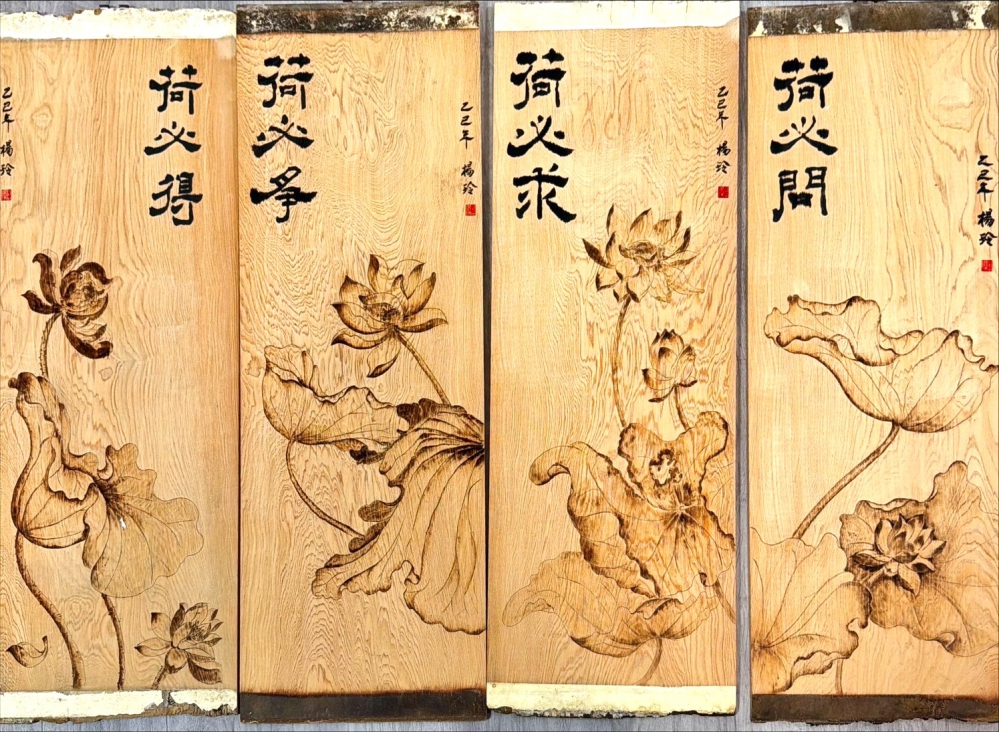 荷必得
乙巳年 楊玲
荷必爭
乙巳年 楊玲
荷必求
乙巳年 楊玲
荷必問
乙巳年 楊玲